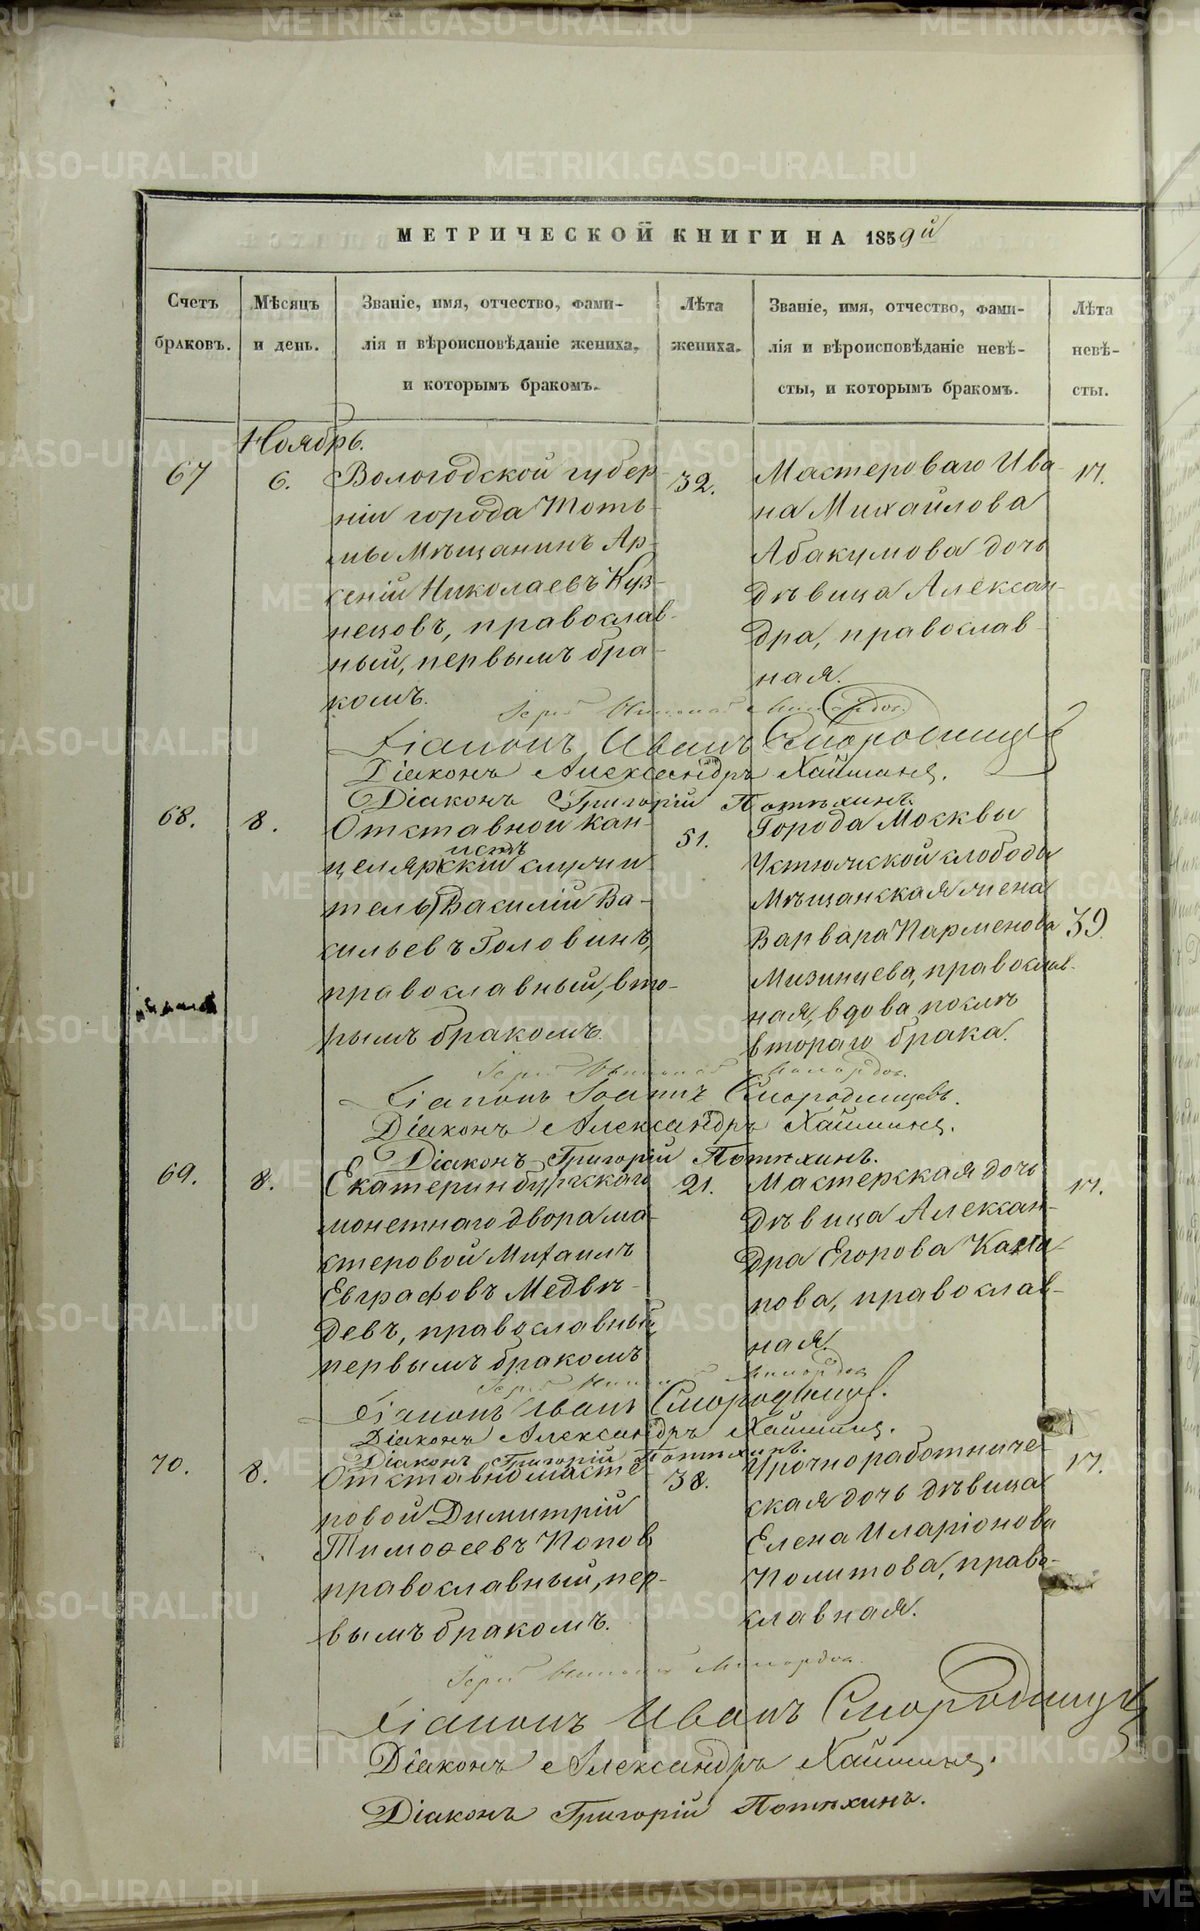 МЕТРИЧЕСКОЙ КНИГИ НА 1859й
Счетъ браковъ.
Мѣсяцъ и день.
Званіе, имя, отчество, фами-
лія и вѣроисповѣданіе жениха,
и которымъ бракомъ.
Лѣта жениха.
Званіе, имя, отчество, фами-
лія и вѣроисповѣданіе невѣ-
сты, и которымъ бракомъ.
Лѣта невѣ-
сты.
Ноябрь.
67
6.
Вологодской губер-
ніи города Тоть-
мы Мѣщанинъ Ар-
сеній Николаевъ Куз-
нецовъ, православ-
ный, первымъ бра-
комъ.
32.
Мастероваго Ива-
на Михайлова
Абакумова дочь
дѣвица Алексан-
дра, православ-
ная.
17.
Діаконъ Иванъ Смородинцевъ
Діаконъ Александръ
Діаконъ Григорій Потѣхинъ.
68.
8.
Отставной кан-
целярскій служи-
тель Василій Ва-
сильевъ Головинъ,
православный, вто-
рымъ бракомъ.
51.
Города Москвы
слободы
Мѣщанская жена
Варвара Парменова
Мизинцева, православ-
ная, вдова послѣ
втораго брака.
39.
Діаконъ Іоаннъ Смородинцевъ.
Діаконъ Александръ
Діаконъ Григорій Потѣхинъ.
69.
8.
Екатеринбургскаго
монетнаго двора ма-
стеровой Михаилъ
Евграфовъ Медвѣ-
девъ, православный
первымъ бракомъ
21.
Мастерская дочь
дѣвица Алексан-
дра Егорова
православ-
ная.
17.
Діаконъ Иванъ Смородинцевъ.
Діаконъ Александръ
Діаконъ Григорій Потѣхинъ.
70.
8.
Отставной масте-
ровой Димитрій
Тимоѳеевъ Поповъ
православный, пер-
вымъ бракомъ.
38.
Урочноработниче-
ская дочь дѣвица
Елена Иларіонова
Политова, право-
славная.
17.
Діаконъ Иванъ Смородинцевъ
Діаконъ Александръ
Діаконъ Григорій Потѣхинъ.
METRIKI.GASO-URAL.RU